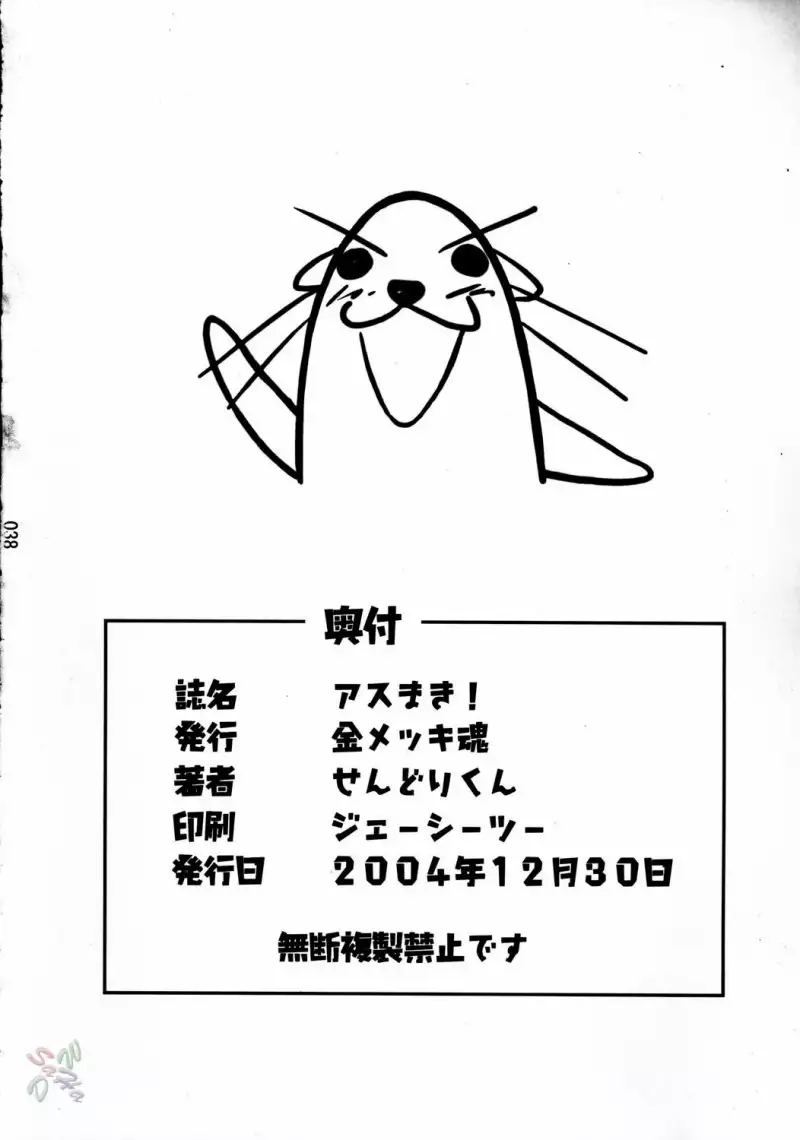 038
奥付
誌名 アスまき!
発行 金メッキ魂
著者 せんどりくん
印刷 ジェーシーツー
発行日 2004年12月30日
無断複製禁止です